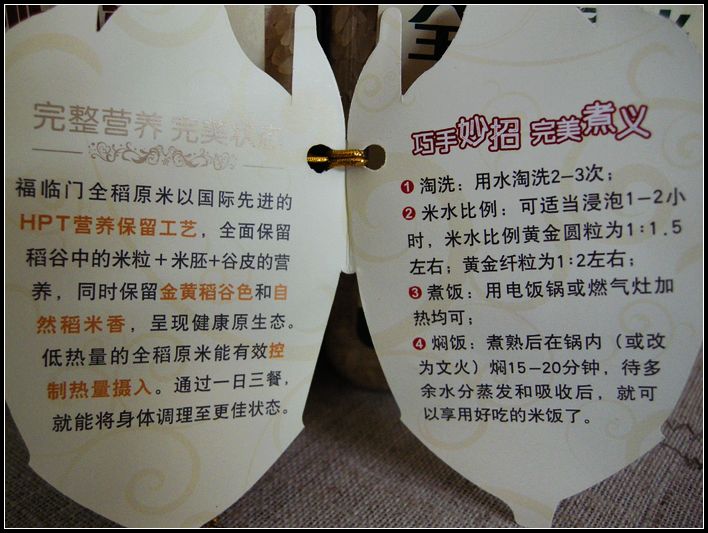 完整营养 完美状态
福临门全稻原米以国际先进的
HPT营养保留工艺，全面保留
稻谷中的米粒＋米胚＋谷皮的营
养，同时保留金黄稻谷色和自
然稻米香，呈现健康原生态。
低热量的全稻原米能有效控
制热量摄入。通过一日三餐，
就能将身体调理至更佳状态。
巧手妙招 完美煮义
1 淘洗：用水淘洗2-3次；
2 米水比例：可适当浸泡1-2小
时，米水比例黄金圆粒为1:1.5
左右；黄金纤粒为1:2左右；
3 煮饭：用电饭锅或燃气灶加
热均可；
4 焖饭：煮熟后在锅内（或改
为文火）焖15-20分钟，待多
余水分蒸发和吸收后，就可
以享用好吃的米饭了。